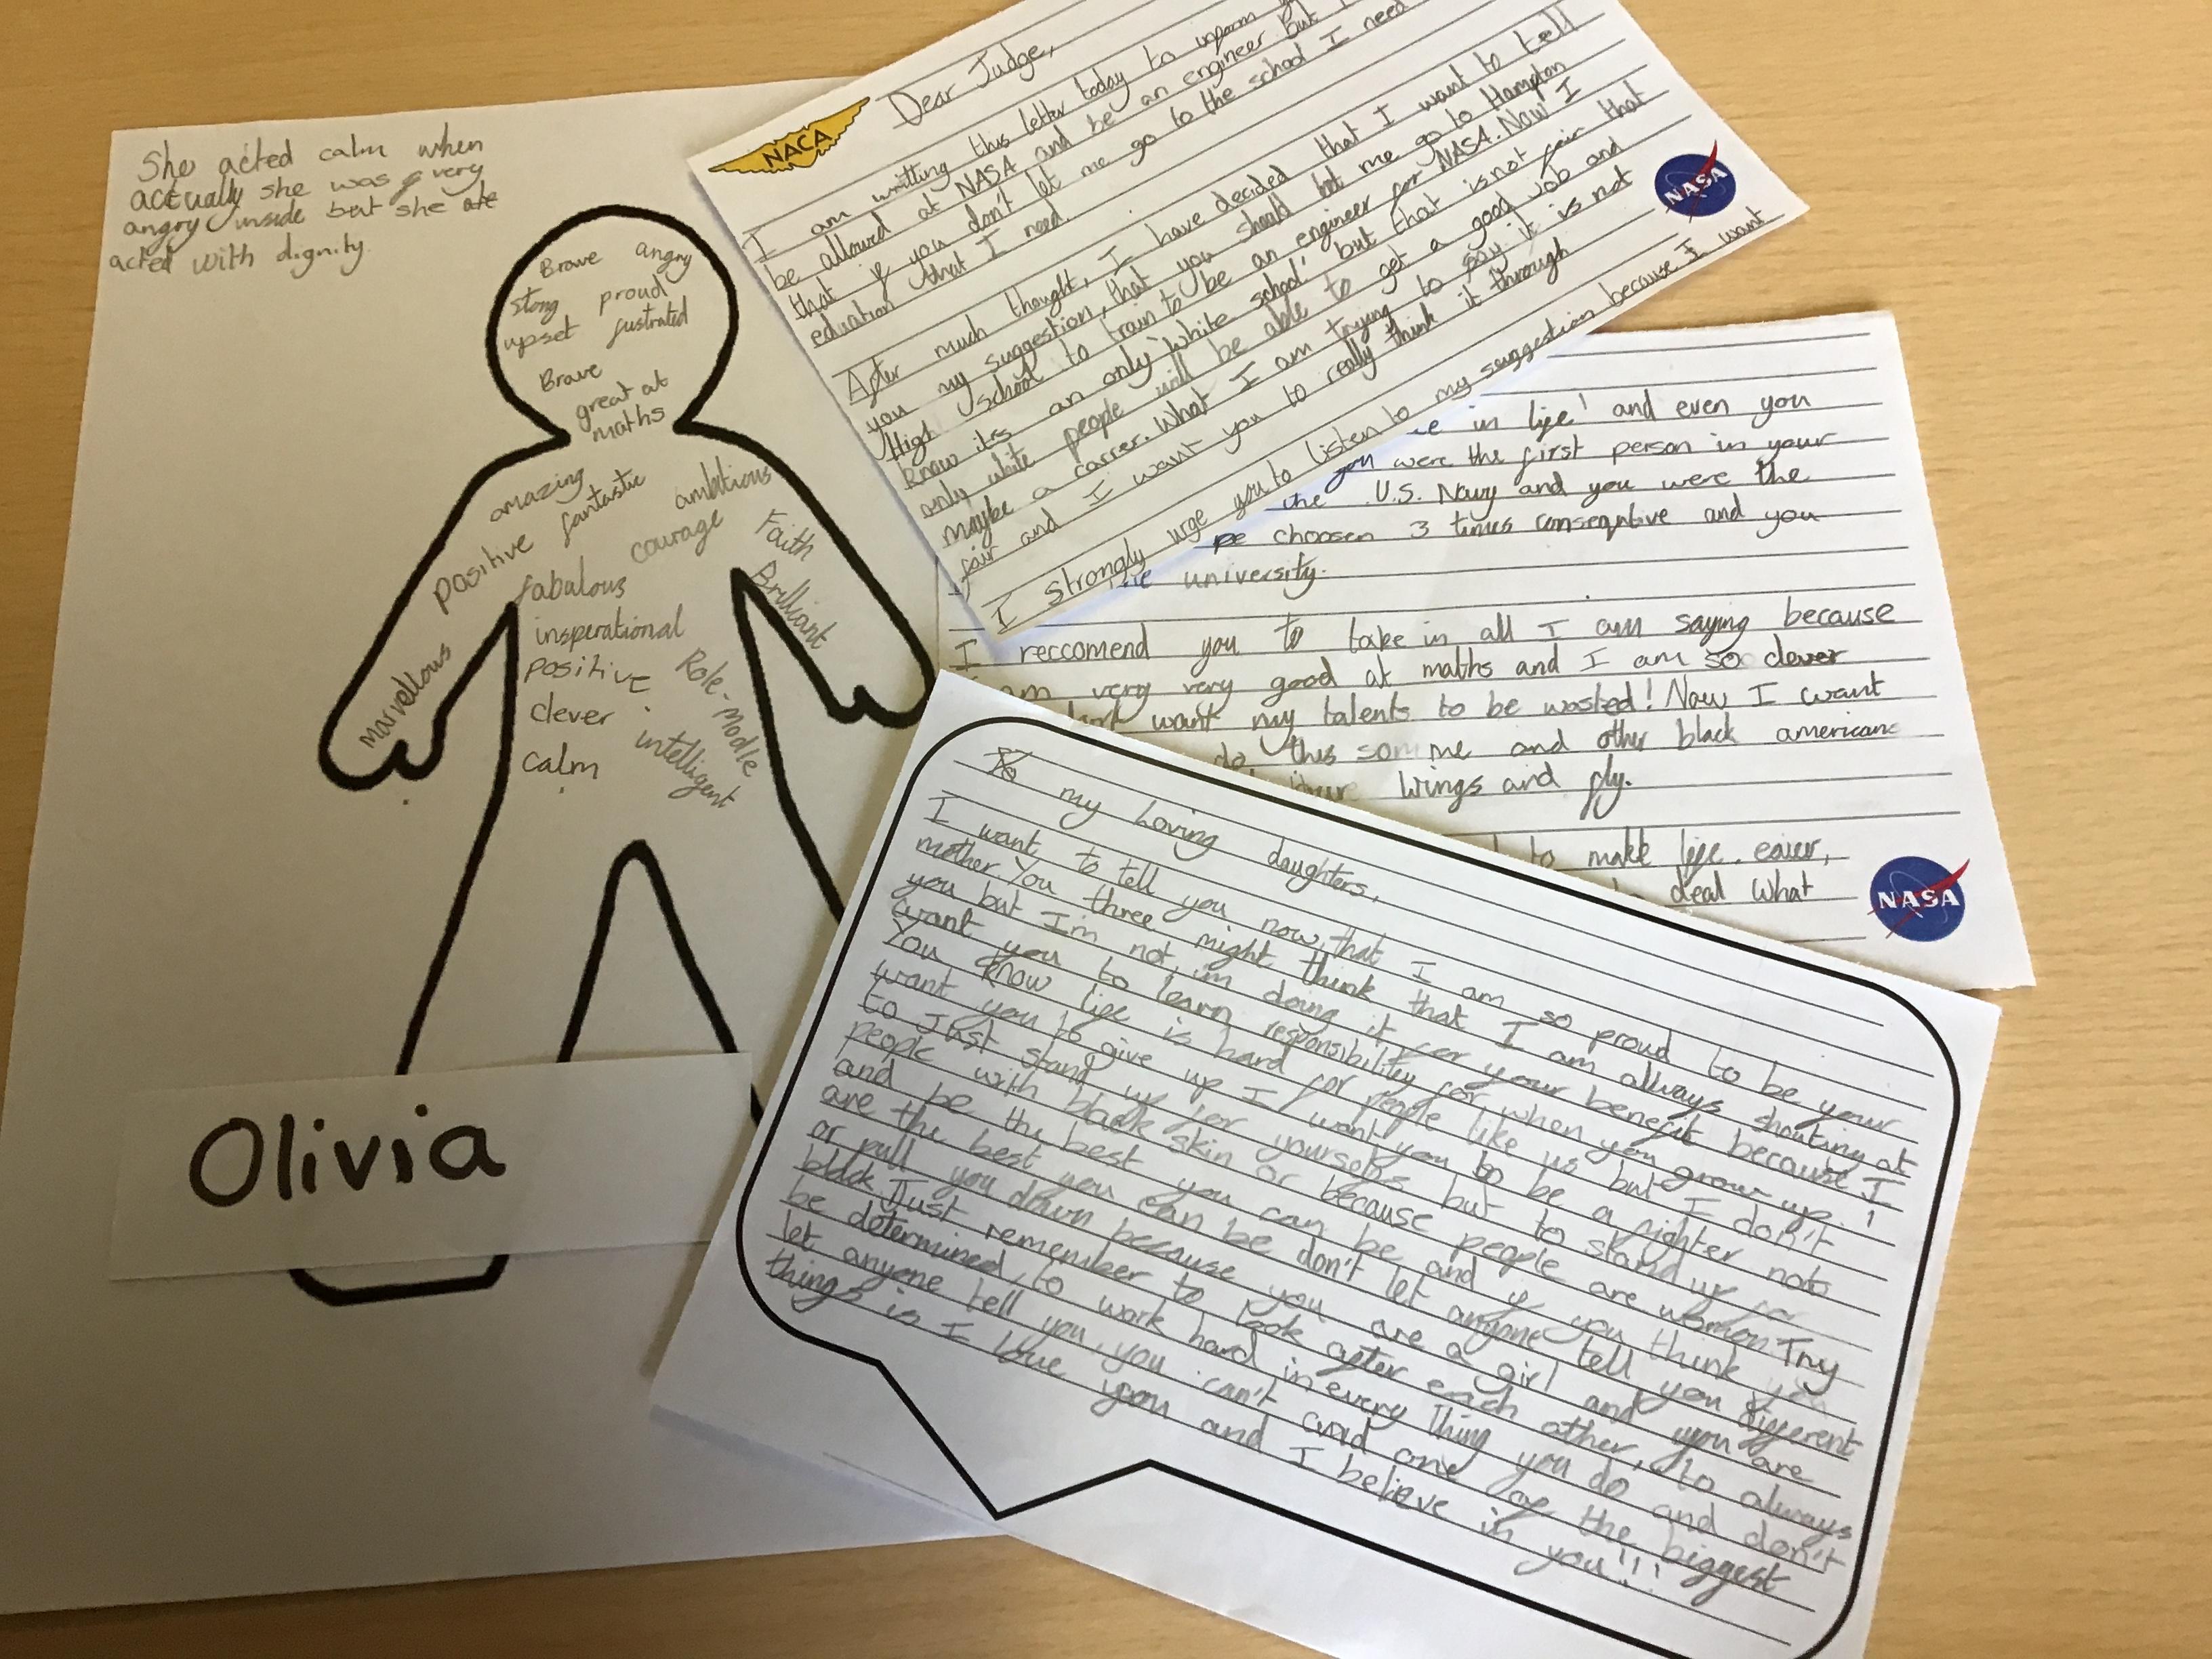 She acted calm when
actually she was very
angry inside but she
acted with dignity.
Brave angry
stong proud
upset fustrated
Brave
great at
maths
amazing
fantastic
ambitious
positive
courage
Faith
fabulous
Brilliant
insperational
marvellous
positive
Role-Modle
clever
intelligent
calm
Olivia
NACA
Dear Judge,
I am writting this letter today to
be allowed at NASA and be an engineer But
that if you don't let me go to the school I need
education that I need.
After much thought, I have decided that I want to tell
you my suggestion, that you should let me go to Hampton
High school to train to be an engineer for NASA. Now I
know its an only 'white school' but that is not fair that
only white people will be able to get a good job and
maybe a carrer. What I am trying to say it is not
fair and I want you to really think it through
I strongly urge you to listen to my suggestion because I want
NASA
in life! and even you
you were the first person in your
the U.S. Navy and you were the
be choosen 3 times consequtive and you
university.
I reccomend you to take in all I am saying because
am very very good at maths and I am so clever
want my talents to be wasted! Now I want
do this me and other black americans
wings and fly.
to make life eaier,
deal what
NASA
To my loving daughters,
I want to tell you now, that I am so proud to be your
mother. You three might think that I am always shouting at
you but I'm not, im doing it for your benefit because I
want you to learn responsibility for when you grow up!
You know life is hard for people like us but I don't
want you to give up I want you to be a fighter not
to Just stand up for yourselfs but to stand up for
people with black skin or because people are women. Try
and be the best you can be and if you think you
are the best you can be don't let anyone tell you different
or pull you down because you are a girl and you are
black. Just remember to look after each other, to always
be determined, to work hard in every thing you do and don't
let anyone tell you, you can't and one of the biggest
things is I love you and I believe in you!!!